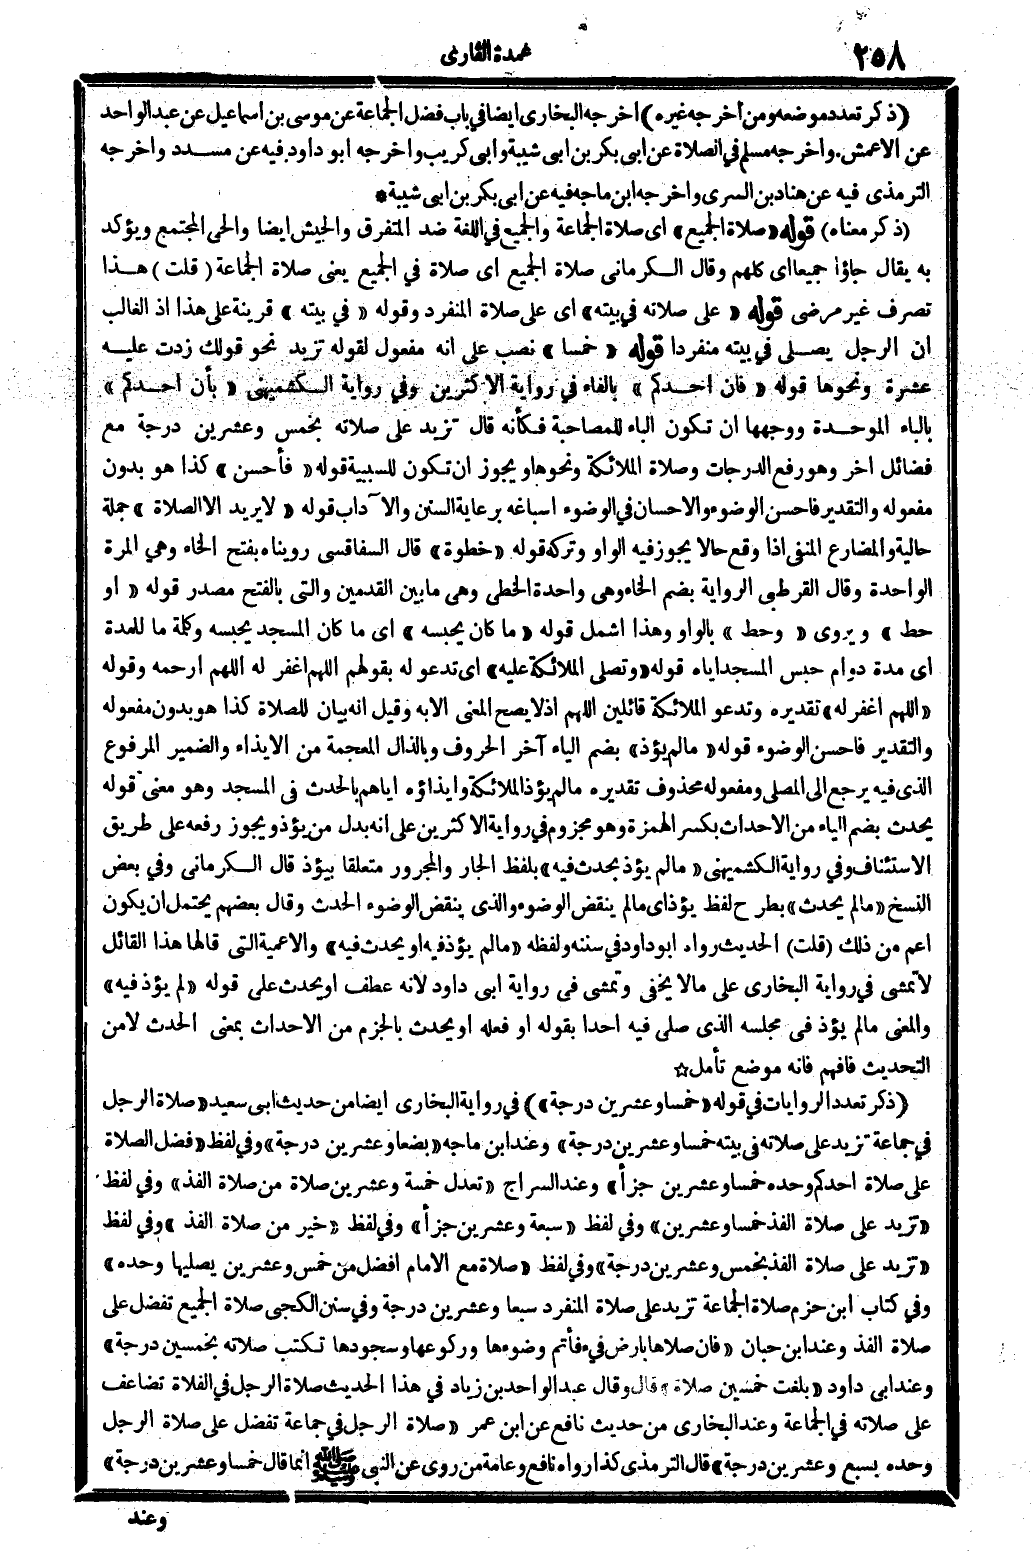 ٢٥٨
عمدة القارى
(ذكر تعدد موضعه ومن أخرجه غيره) أخرجه البخارى ايضا فى باب فضل الجماعة عن موسى بن اسماعيل عن عبد الواحد
عن الاعمش. واخرجه مسلم فى الصلاة عن ابى بكر بن ابى شيبة وابى كريب واخرجه ابو داود فيه عن مسدد واخرجه
الترمذى فيه عن هناد بن السرى واخرجه ابن ماجه فيه عن ابى بكر بن ابى شيبة *
(ذكر معناه) قوله «صلاة الجميع» اى صلاة الجماعة والجميع فى اللغة ضد المتفرق والجيش ايضا والحى المجتمع ويؤكد
به يقال جاؤا جميعا اى كلهم وقال الكرمانى صلاة الجميع اى صلاة فى الجميع يعنى صلاة الجماعة (قلت) هذا
تصرف غير مرضى قوله «على صلاته فى بيته» اى على صلاة المنفرد وقوله «فى بيته» قرينة على هذا اذ الغالب
ان الرجل يصلى فى بيته منفردا قوله «خمسا» نصب على انه مفعول لقوله تزيد نحو قولك زدت عليه
عشرة ونحوها قوله «فان احدكم» بالفاء فى رواية الاكثرين وفى رواية الكشميهنى «بأن احدكم»
بالباء الموحدة ووجهها ان تكون الباء للمصاحبة فكأنه قال تزيد على صلاته بخمس وعشرين درجة مع
فضائل اخر وهو رفع الدرجات وصلاة الملائكة ونحوها ويجوز ان تكون للسببية قوله «فأحسن» كذا هو بدون
مفعوله والتقدير فاحسن الوضوء والاحسان فى الوضوء اسباغه برعاية السنن والآداب قوله «لا يريد الا الصلاة» جملة
حالية والمضارع المنفى اذا وقع حالا يجوز فيه الواو وتركه قوله «خطوة» قال السفاقسى رويناه بفتح الخاء وهى المرة
الواحدة وقال القرطبى الرواية بضم الخاء وهى واحدة الخطى وهى ما بين القدمين والتى بالفتح مصدر قوله «او
حط» ويروى «وحط» بالواو وهذا اشمل قوله «ما كان يحبسه» اى ما كان المسجد يحبسه وكلمة ما للمدة
اى مدة دوام حبس المسجد اياه قوله «وتصلى الملائكة عليه» اى تدعو له بقولهم اللهم اغفر له اللهم ارحمه وقوله
«اللهم اغفر له» تقديره وتدعو الملائكة قائلين اللهم اذ لا يصح المعنى الا به وقيل انه بيان للصلاة كذا هو بدون مفعوله
والتقدير فاحسن الوضوء قوله «مالم يؤذ» بضم الياء آخر الحروف وبالذال المعجمة من الايذاء والضمير المرفوع
الذى فيه يرجع الى المصلى ومفعوله محذوف تقديره مالم يؤذ الملائكة وايذاؤه اياهم بالحدث فى المسجد وهو معنى قوله
يحدث بضم الياء من الاحداث بكسر الهمزة وهو مجزوم فى رواية الاكثرين على انه بدل من يؤذ ويجوز رفعه على طريق
الاستئناف وفى رواية الكشميهنى «مالم يؤذ بحدث فيه» بلفظ الجار والمجرور متعلقا بيؤذ قال الكرمانى وفى بعض
النسخ «مالم يحدث» بطرح لفظ يؤذ اى مالم ينقض الوضوء والذى ينقض الوضوء الحدث وقال بعضهم يحتمل ان يكون
اعم من ذلك (قلت) الحديث رواه ابو داود فى سننه ولفظه «مالم يؤذ فيه او يحدث فيه» والاعمية التى قالها هذا القائل
لا تمشى فى رواية البخارى على مالا يخفى وتمشى فى رواية ابى داود لانه عطف او يحدث على قوله «لم يؤذ فيه»
والمعنى مالم يؤذ فى مجلسه الذى صلى فيه احدا بقوله او فعله او يحدث بالجزم من الاحداث بمعنى الحدث لا من
التحديث فافهم فانه موضع تأمل☆
(ذكر تعدد الروايات فى قوله «خمسا وعشرين درجة») فى رواية البخارى ايضا من حديث ابى سعيد «صلاة الرجل
فى جماعة تزيد على صلاته فى بيته خمسا وعشرين درجة» وعند ابن ماجه «بضعا وعشرين درجة» وفى لفظ «فضل الصلاة
على صلاة احدكم وحده خمسا وعشرين جزأ» وعند السراج «تعدل خمسة وعشرين صلاة من صلاة الفذ» وفى لفظ
«تزيد على صلاة الفذ خمسا وعشرين» وفى لفظ «سبعة وعشرين جزأ» وفى لفظ «خير من صلاة الفذ» وفى لفظ
«تزيد على صلاة الفذ بخمس وعشرين درجة» وفى لفظ «صلاة مع الامام افضل من خمس وعشرين يصليها وحده»
وفى كتاب ابن حزم صلاة الجماعة تزيد على صلاة المنفرد سبعا وعشرين درجة وفى سنن الكجى صلاة الجميع تفضل على
صلاة الفذ وعند ابن حبان «فان صلاها بارض فىء فأتم وضوءها وركوعها وسجودها تكتب صلاته بخمسين درجة»
وعند ابى داود «بلغت خمسين صلاة» قال وقال عبد الواحد بن زياد فى هذا الحديث صلاة الرجل فى الفلاة تضاعف
على صلاته فى الجماعة وعند البخارى من حديث نافع عن ابن عمر «صلاة الرجل فى جماعة تفضل على صلاة الرجل
وحده بسبع وعشرين درجة» قال الترمذى كذا رواه نافع وعامة من روى عن النبى ﷺ انما قال خمسا وعشرين درجة»
وعند